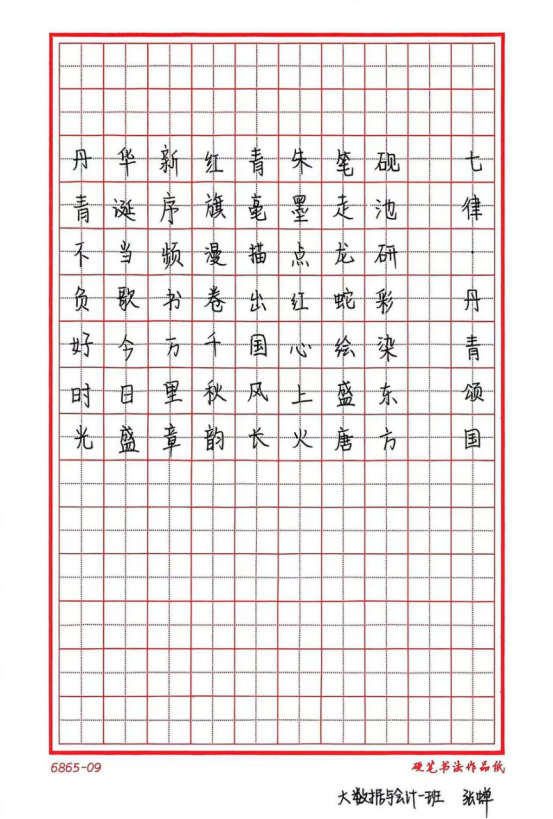 七律·丹青颂国
砚池研彩染东方
笔走龙蛇绘盛唐
朱墨点红心上火
青毫描出国风长
红旗漫卷千秋韵
新序频书万里章
华诞当歌今日盛
丹青不负好时光
6865-09
硬笔书法作品纸
大数据与会计一班 张婵